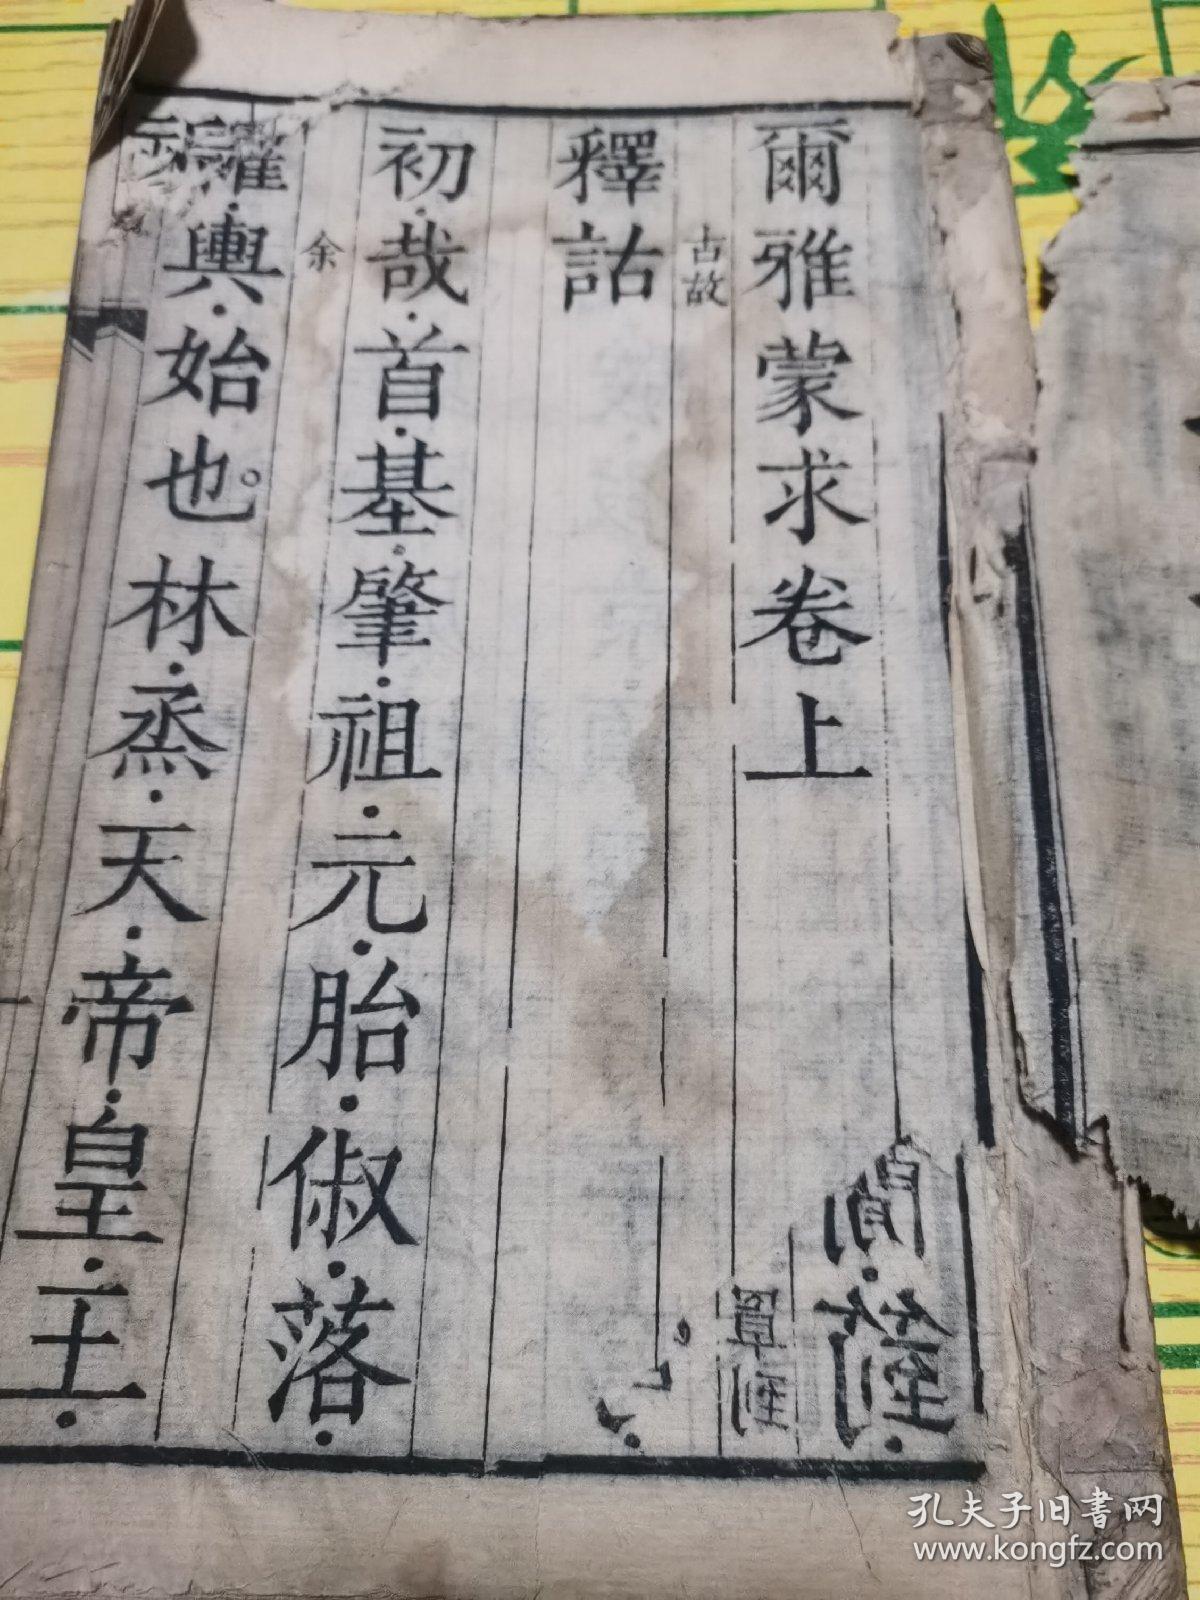 爾雅蒙求卷上
古故
釋詁
初.哉.首.基.肇.祖.元.胎.俶.落.
余
輿.始也。林.烝.天.帝.皇.王.
孔夫子旧书网
www.kongfz.com